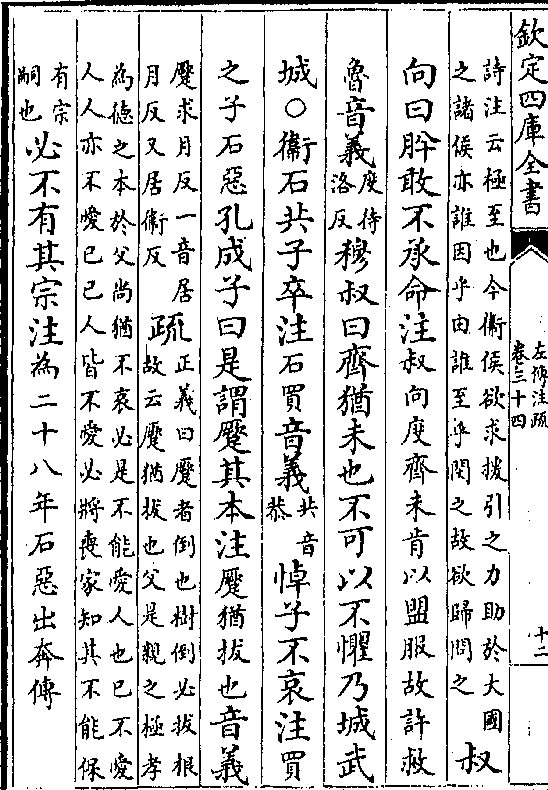 欽定四庫全書
左傳注疏
卷三十四
十二
詩注云極至也今衛侯欲求援引之力助於大國
之諸侯亦誰因乎由誰至乎閔之故欲歸問之
叔
向曰肸敢不承命注叔向度齊未肯以盟服故許救
魯音義度待
洛反穆叔曰齊猶未也不可以不懼乃城武
城○衛石共子卒注石買音義共音
恭悼子不哀注買
之子石惡孔成子曰是謂蹷其本注蹷猶拔也音義
蹷求月反一音居
月反又居衛反
疏
正義曰蹷者倒也樹倒必拔根
故云蹷猶拔也父是親之極孝
為德之本於父尚猶不哀必是不能愛人也已不愛
人人亦不愛已已人皆不愛必將喪家知其不能保
有宗
嗣也
必不有其宗注為二十八年石惡出奔傳